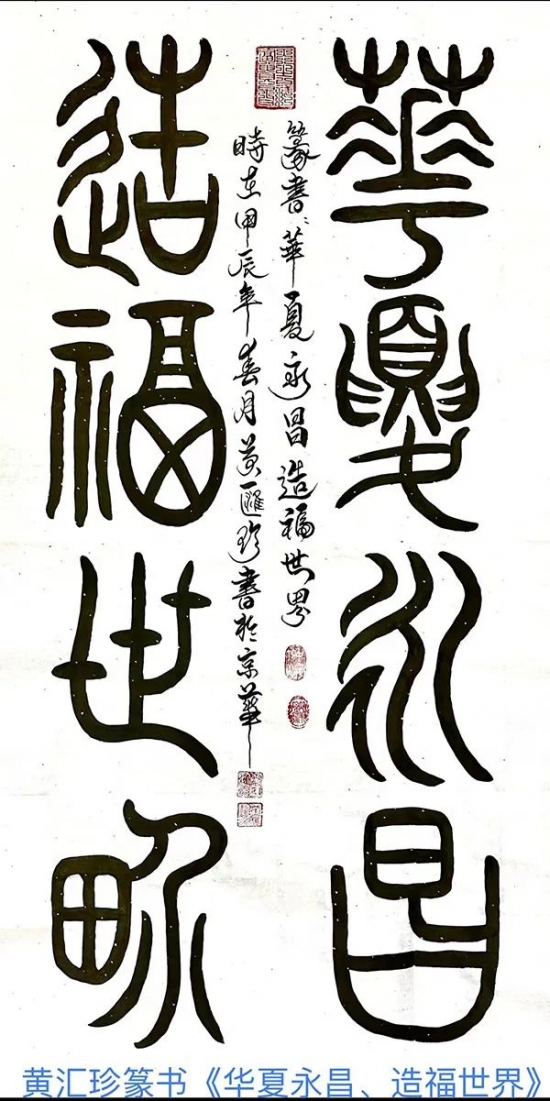 華夏永昌
造福世界
篆書：華夏永昌造福世界
時在甲辰年春月黄匯珍書於京華
黄汇珍篆书《华夏永昌、造福世界》